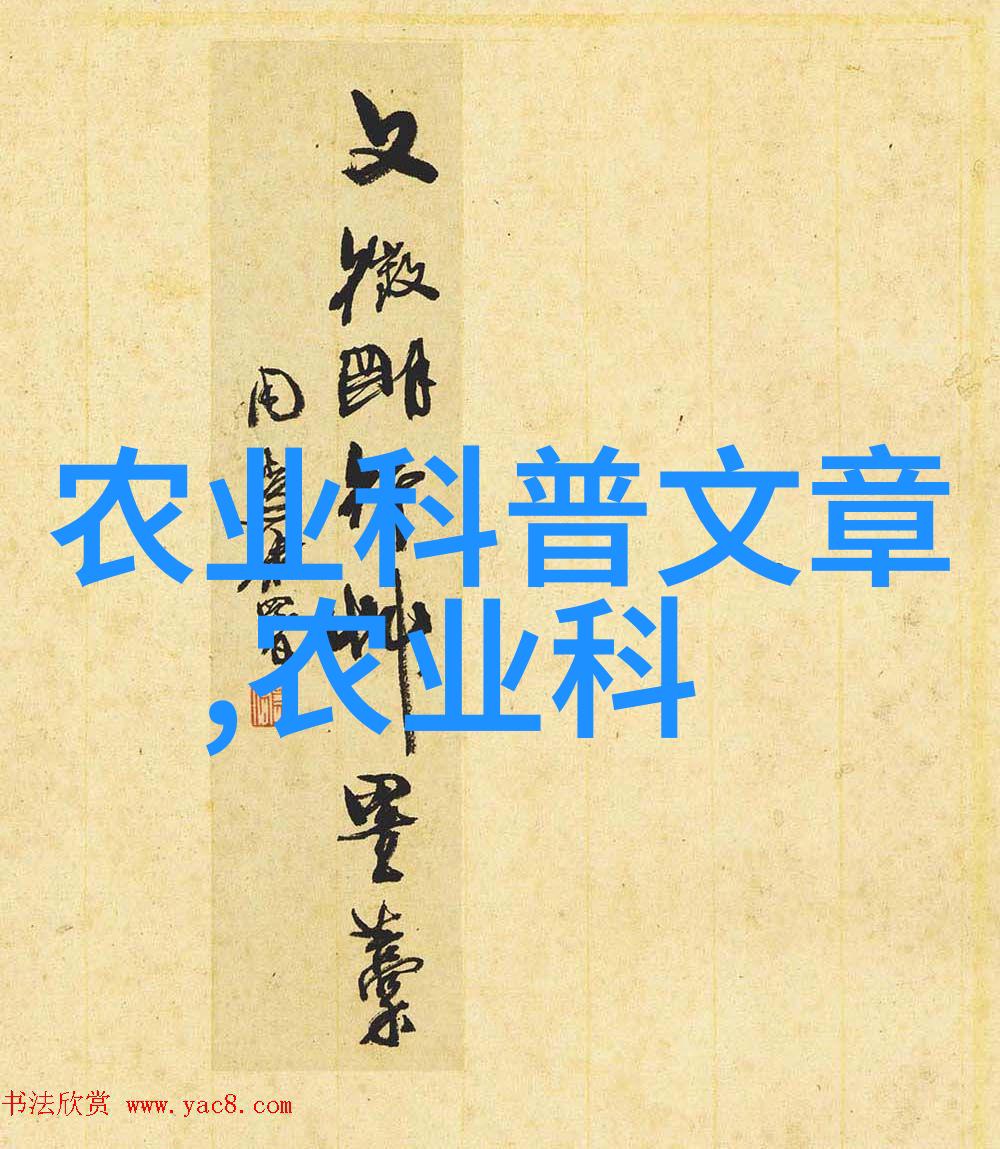 文徵明行草墨藁
农业科普文章
,农业科
书法欣赏 www.yac8.com